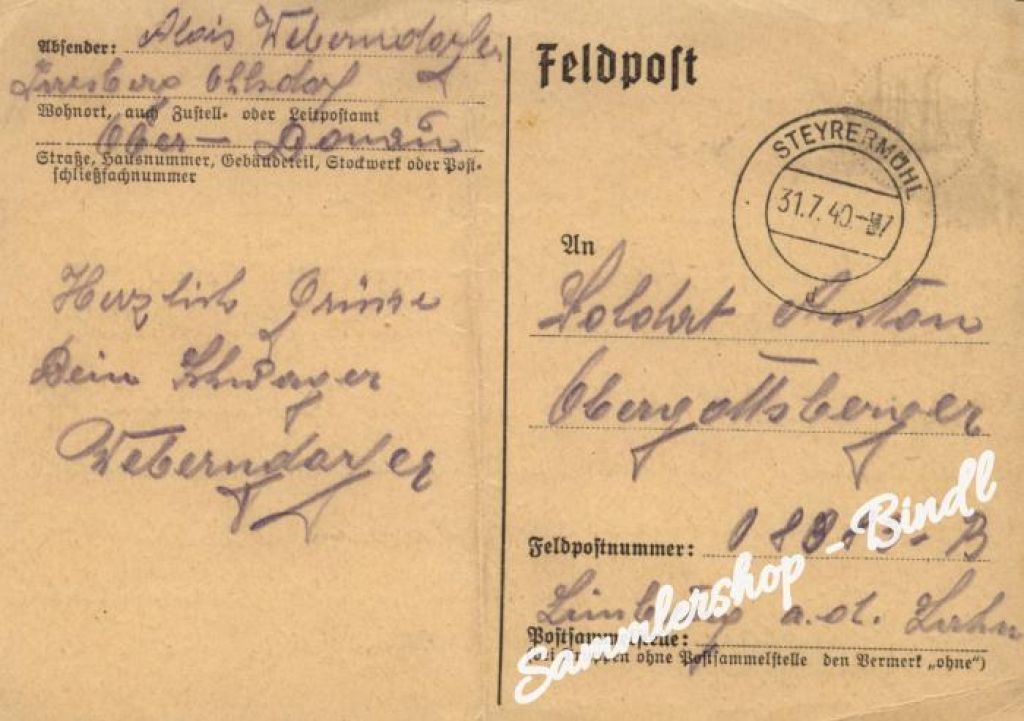 Absender: Alois Weberndorfer
Ohlsdorf
Wohnort, auch Zustell- oder Leitpostamt
Ober-Donau
Straße, Hausnummer, Gebäudeteil, Stockwerk oder Post-
schließfachnummer
Herzlich Grüsse
Dein Schwager
Weberndorfer
Feldpost
STEYRERMÜHL
31.7.40.
An
Soldat Anton
Obergottsberger
Feldpostnummer:
Limburg a.d. Lahn
Postsammelstelle:
(bei Truppen ohne Postsammelstelle den Vermerk „ohne“)
Sammlershop - Bindl